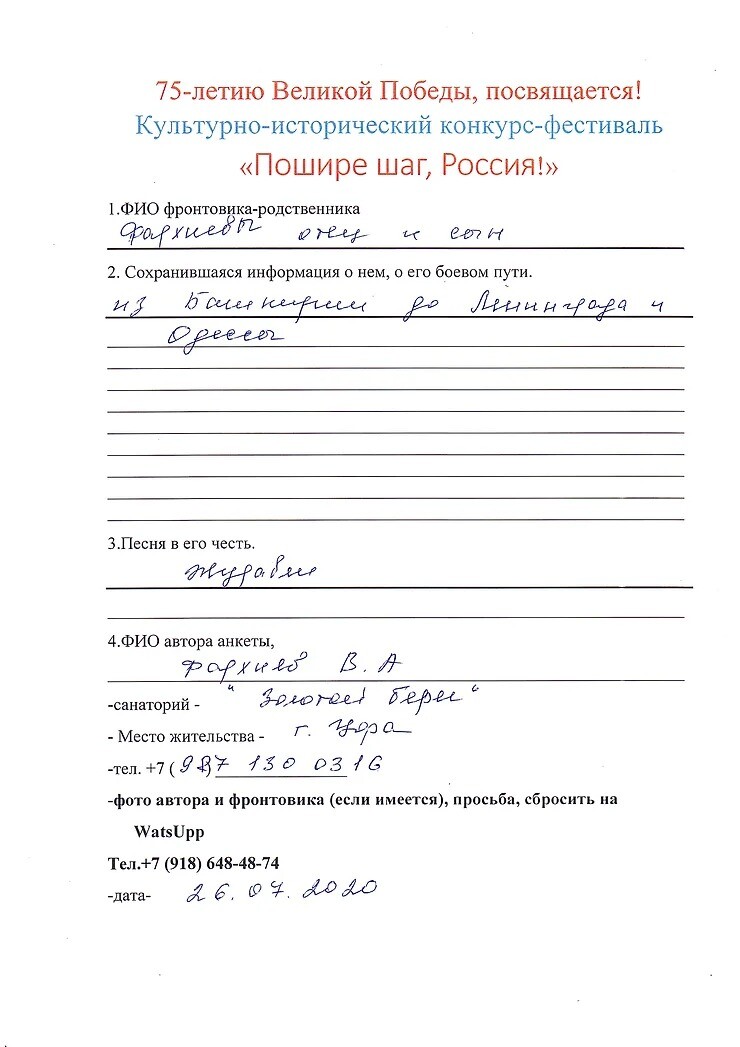 75-летию Великой Победы, посвящается!
Культурно-исторический конкурс-фестиваль
«Пошире шаг, Россия!»
1.ФИО фронтовика-родственника
Фархиевы отец и сын
2. Сохранившаяся информация о нем, о его боевом пути.
из Башкирии до Ленинграда и
Одессы
3.Песня в его честь.
Журавли
4.ФИО автора анкеты,
Фархиев В. А
-санаторий - "Золотой берег"
- Место жительства - г. Уфа
-тел. +7 (987 130 0316
-фото автора и фронтовика (если имеется), просьба, сбросить на
WatsUpp
Тел.+7 (918) 648-48-74
-дата- 26.07.2020